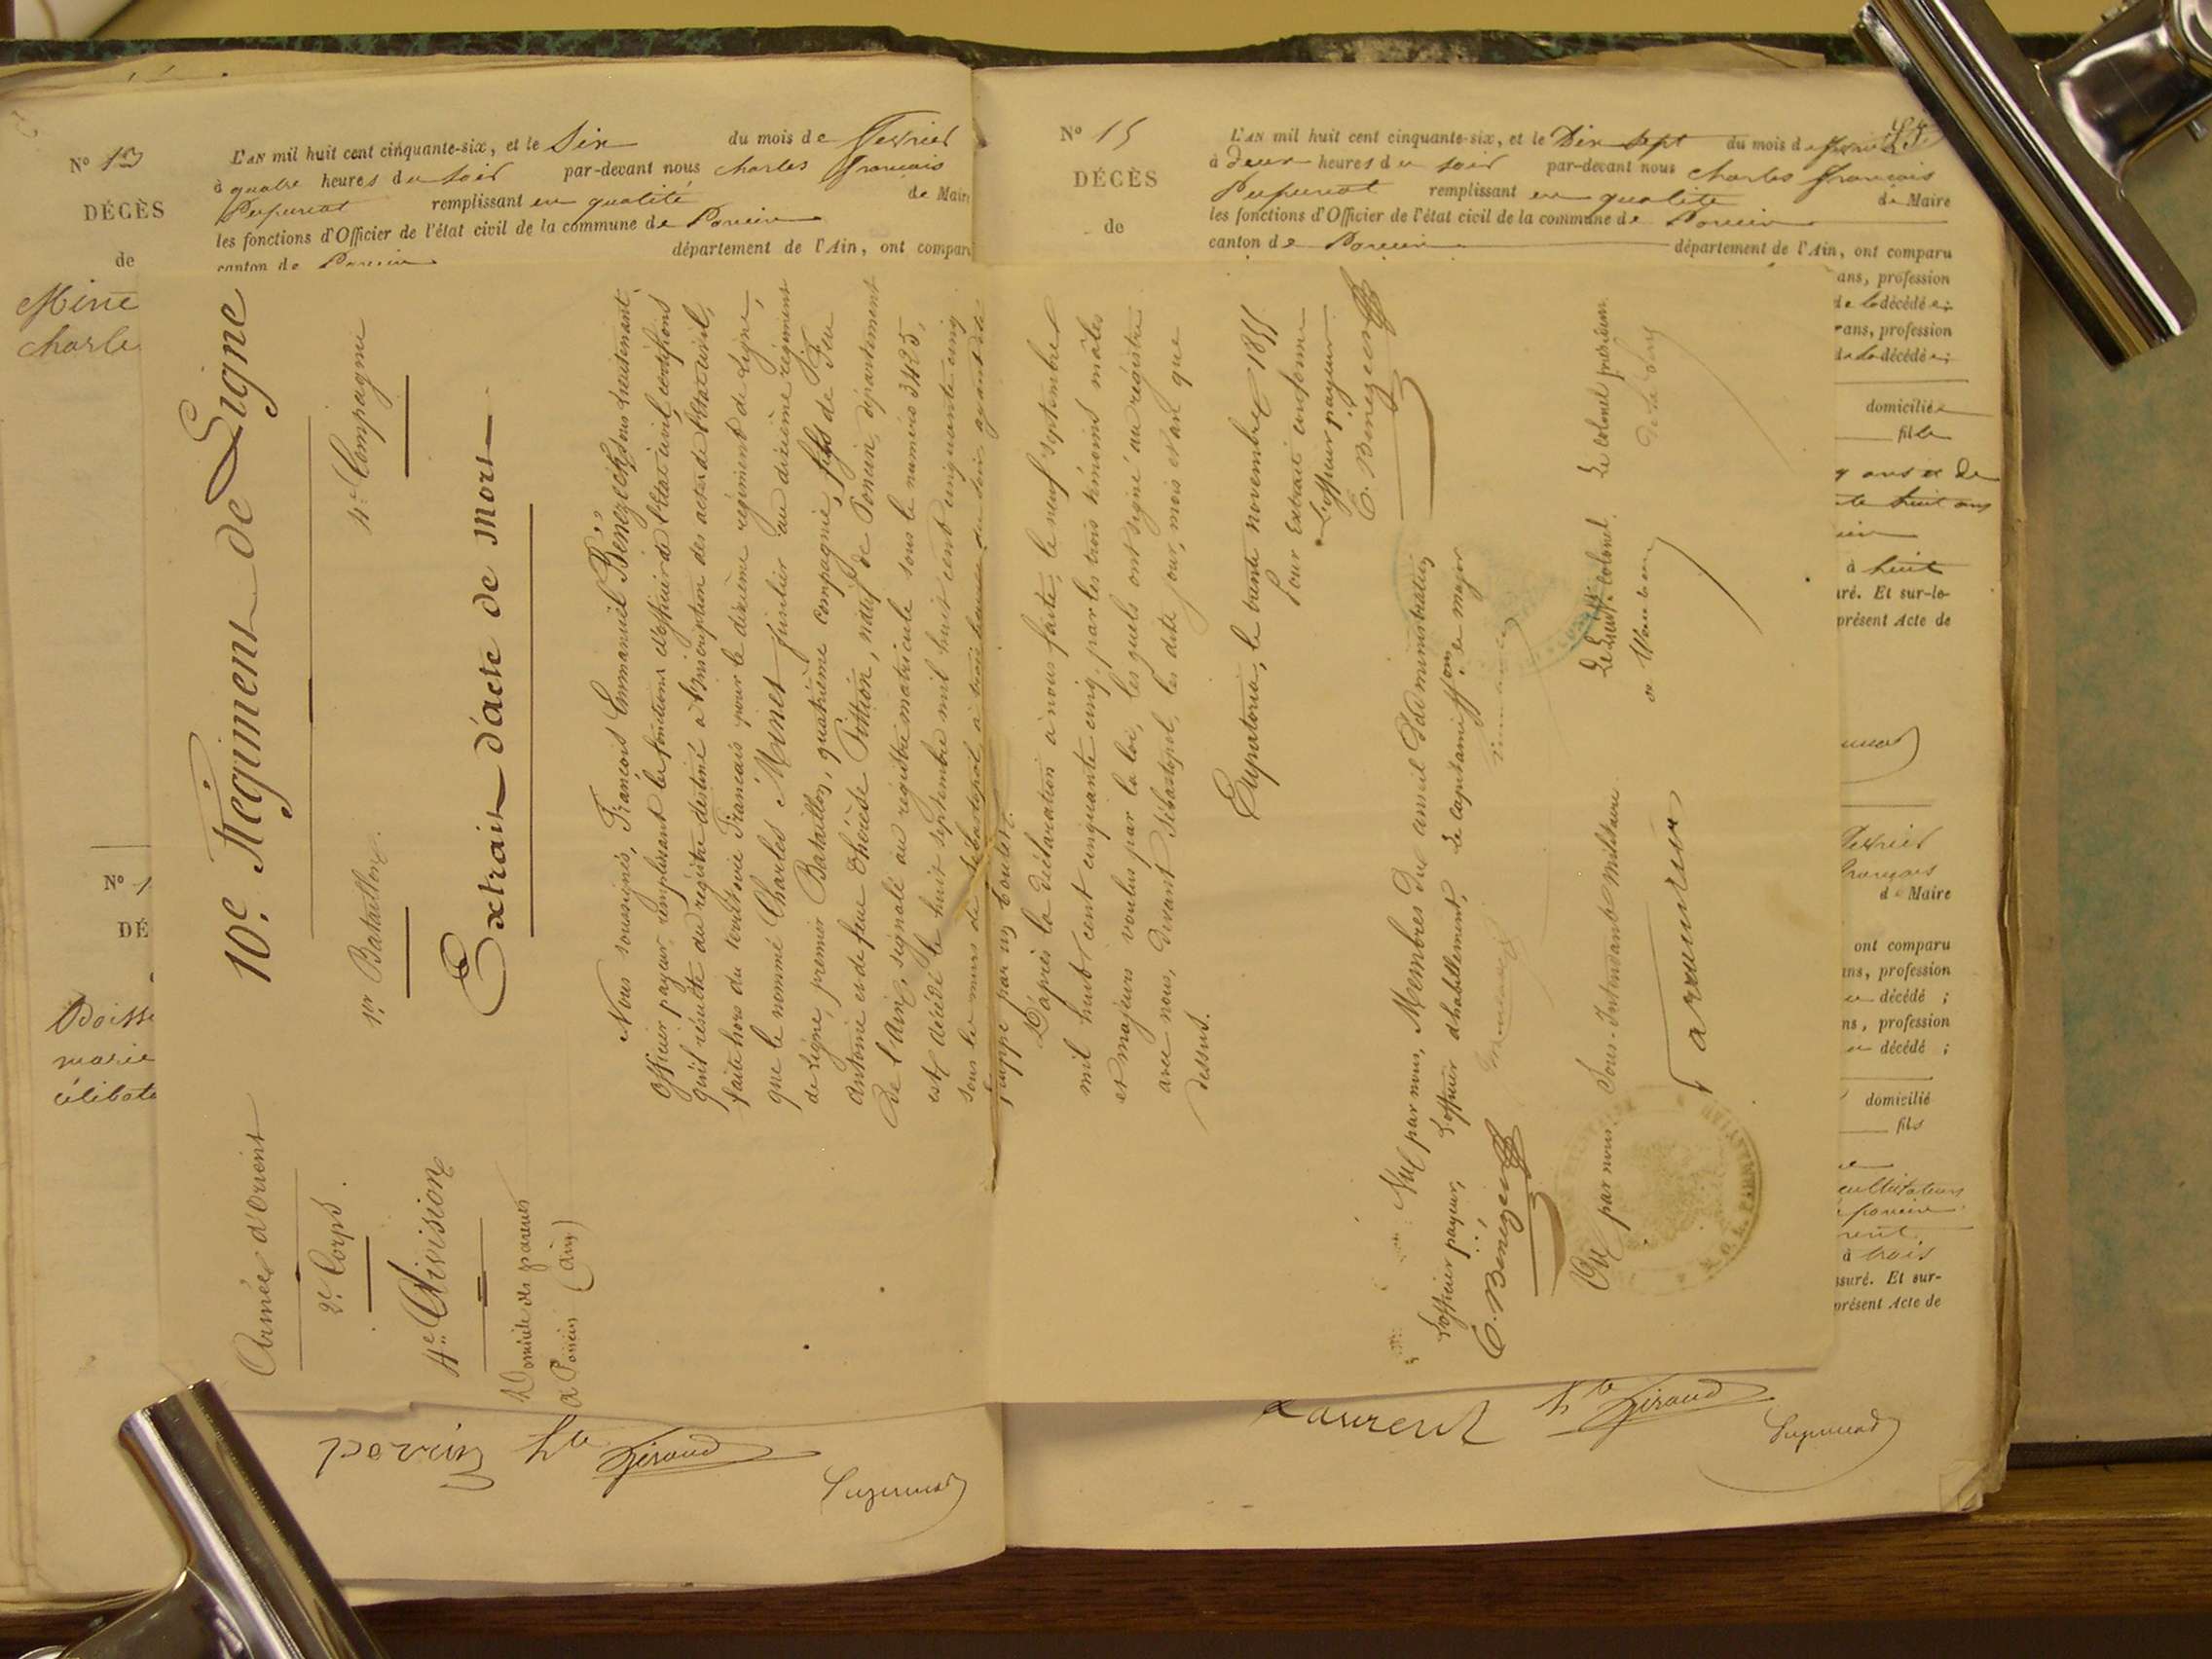 N° 13
DÉCÈS
de
Mine
Charle
L'AN mil huit cent cinquante-six, et le Six du mois de Fevrier
à quatre heures du soir par-devant nous Charles François
remplissant en qualité de Maire
les fonctions d'Officier de l'état civil de la commune de Poncin
canton de Poncin département de l'Ain, ont compar
N° 1
DÉ
marie
célibata
perrin hte Giraud
N° 15
DÉCÈS
de
L'AN mil huit cent cinquante-six, et le Dix Sept du mois de
à Deux heures du soir par-devant nous Charles François
remplissant en qualité de Maire
les fonctions d'Officier de l'état civil de la commune de Poncin
canton de Poncin département de l'Ain, ont comparu
ans, profession
de la décédée;
ans, profession
de la décédée;
domiciliée
fille
ans et de
huit ans
à huit
uré. Et sur-le-
présent Acte de
fevrier
François
de Maire
ont comparu
ans, profession
décédé;
ns, profession
décédé;
domicilié
fils
cultivateurs
à trois
ssuré. Et sur-
présent Acte de
Laurent hte Giraud
Armée d'Orient
2e Corps
4e Division
Domicile des parents
à Poncin (ain)
10e Régiment de Ligne
1er Bataillon 4e Compagnie
Extrait d'acte de Mort
Nous soussignés, François Emmanuel Bénézech, sous lieutenant
officier payeur remplissant les fonctions d'officier de l'état civil certifions
qu'il résulte du registre destiné à l'inscription des actes de l'état civil,
faits hors du territoire Français pour le dixième régiment de ligne,
que le nommé Charles Minet fusilier au dixième régiment
de Ligne, premier Bataillon, quatrième compagnie, fils de Feu
Antoine et de feue Thérèse Pottion, natif de Poncin, département
de l'Ain, signalé au registre matricule sous le numéro 3425,
est décédé le huit septembre mil huit cent cinquante cinq
sous les murs de Sébastopol, à trois heures du soir ayant été
frappé par un boulet.
D'après la déclaration à nous faite, le neuf septembre
mil huit cent cinquante cinq, par les trois témoins mâles
et majeurs voulus par la loi, les quels ont signé au registre
avec nous, devant Sébastopol, les dits jour, mois et an que
dessus.
Eupatoria, le trente novembre 1855
Pour Extrait conforme
L'officier payeur
E. Bénézech
Vu par nous, Membres du conseil d'administration
L'officier payeur, L'officier d'habillement, Le capitaine ffons de major
E. Bénézech
Le Lieut. Colonel Le Colonel président
Vu par nous Sous-Intendant militaire